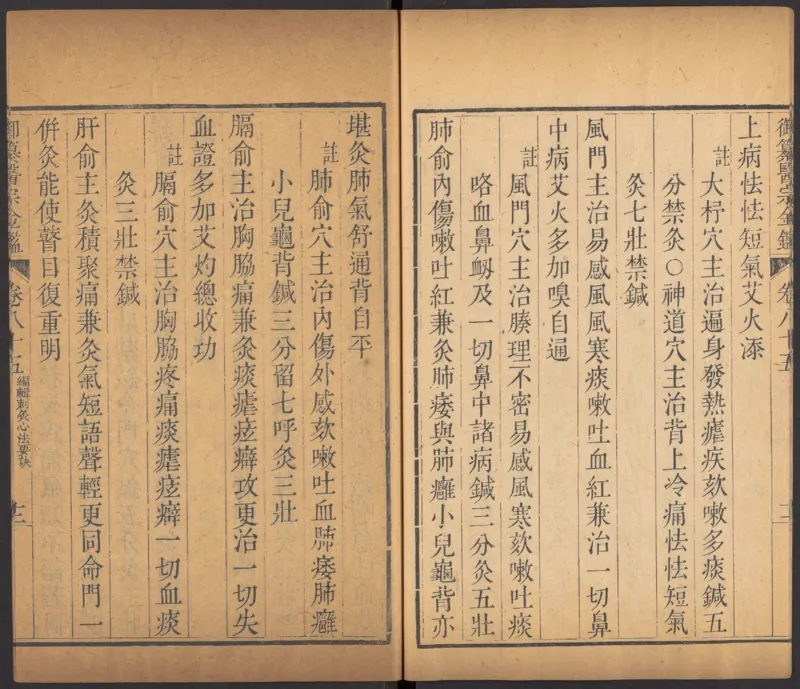 御纂醫宗金鑑 卷八十五
上病怯怯短氣艾火添
註 大杼穴主治遍身發熱瘧疾欬嗽多痰鍼五
分禁灸○神道穴主治背上冷痛怯怯短氣
灸七壯禁鍼
風門主治易感風風寒痰嗽吐血紅兼治一切鼻
中病艾火多加嗅自通
註 風門穴主治腠理不密易感風寒欬嗽吐痰
咯血鼻衂及一切鼻中諸病鍼三分灸五壯
肺俞內傷嗽吐紅兼灸肺痿與肺癰小兒龜背亦
堪灸肺氣舒通背自平
註 肺俞穴主治內傷外感欬嗽吐血肺痿肺癰
小兒龜背鍼三分留七呼灸三壯
膈俞主治胸脇痛兼灸痰瘧痃癖攻更治一切失
血證多加艾灼總收功
註 膈俞穴主治胸脇疼痛痰瘧痃癖一切血痰
灸三壯禁鍼
肝俞主灸積聚痛兼灸氣短語聲輕更同命門一
併灸能使瞽目復重明
御纂醫宗金鑑 卷八十五 編輯刺灸心法要訣 十二